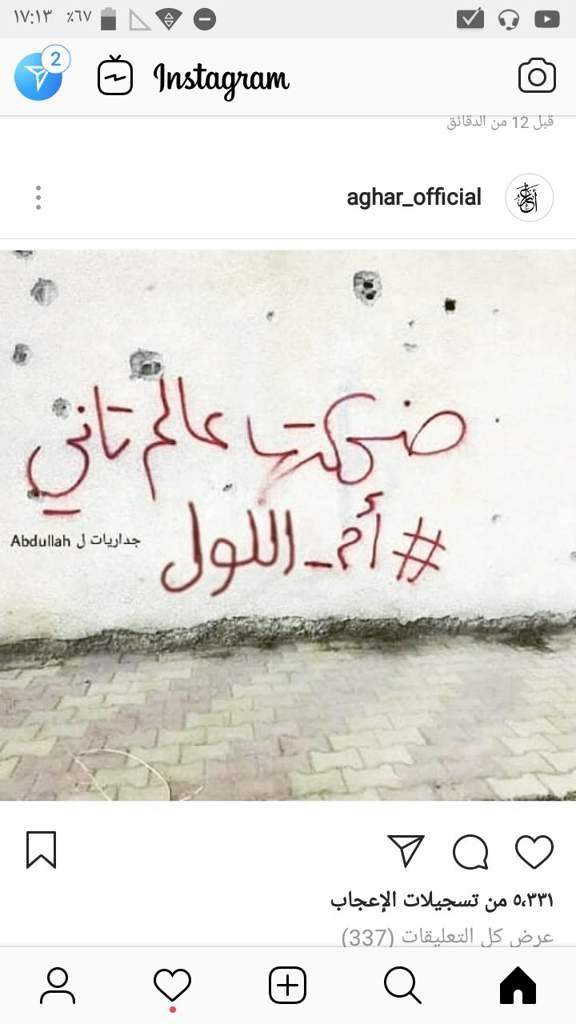 ١٧:١٣ ٪٦٧
2
Instagram
قبل 12 من الدقائق
aghar_official
ضحكتها عالم تاني
#أم_اللول
جداريات ل Abdullah
٥،٣٣١ من تسجيلات الإعجاب
عرض كل التعليقات (337)